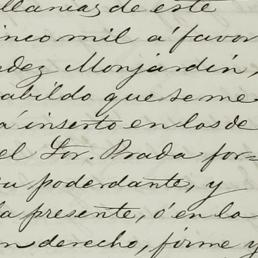 llanias de este
inco mil á favor
dez Monjardin,
abildo que se me
á inserto en los de
el Sor. Prada for-
su poderdante, y
la presente, ó en la
n derecho, firme y